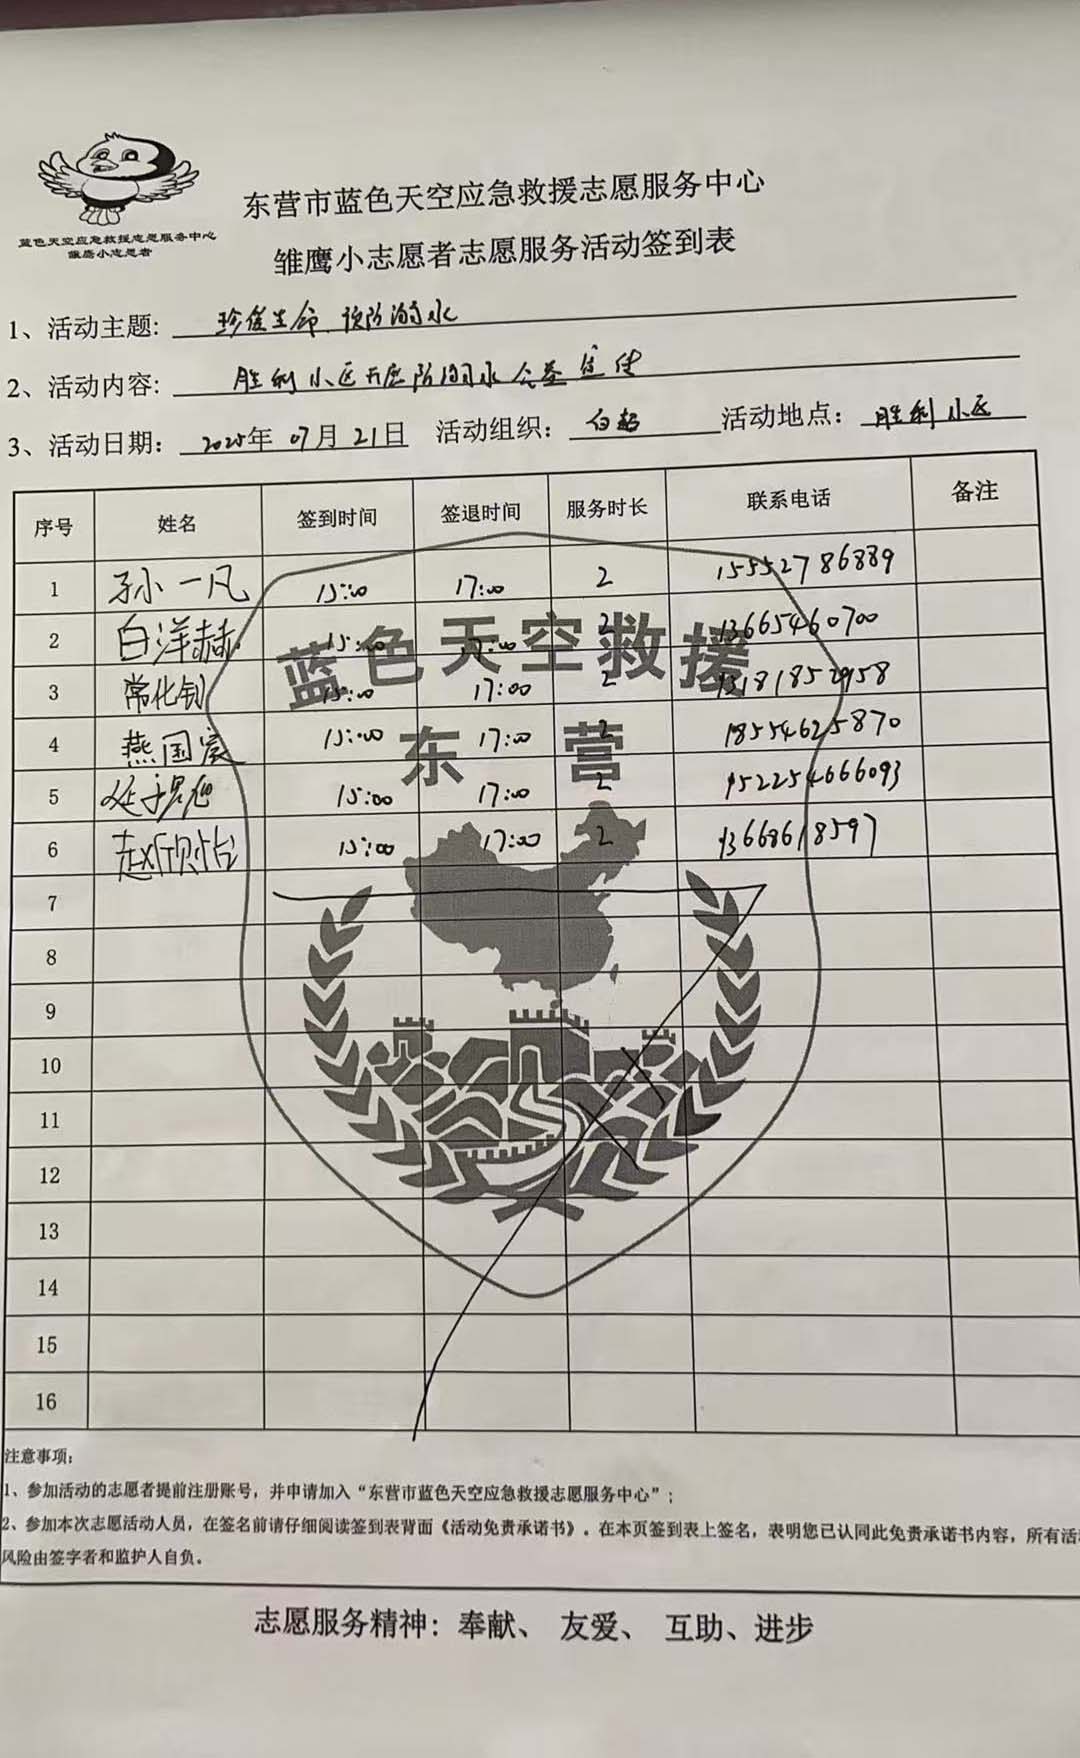 蓝色天空应急救援志愿服务中心
雏鹰小志愿者
东营市蓝色天空应急救援志愿服务中心
雏鹰小志愿者志愿服务活动签到表
1、活动主题: 珍惜生命 预防溺水
2、活动内容: 胜利小区开展防溺水公益宣传
3、活动日期: 2025年07月21日 活动组织: 白超 活动地点: 胜利小区
序号 姓名 签到时间 签退时间 服务时长 联系电话 备注
1 孙一凡 15:00 17:00 2 15552786889
2 白洋赫 15:00 17:00 2 13665460700
3 常化钊 15:00 17:00 2 13181852958
4 燕国宸 15:00 17:00 2 18554625870
5 15:00 17:00 2 152254666093
6 15:00 17:00 2 13668618597
7
8
9
10
11
12
13
14
15
16
蓝色天空救援
东营
注意事项:
1、参加活动的志愿者提前注册账号，并申请加入“东营市蓝色天空应急救援志愿服务中心”;
2、参加本次志愿活动人员，在签名前请仔细阅读签到表背面《活动免责承诺书》。在本页签到表上签名，表明您已认同此免责承诺书内容，所有活
风险由签字者和监护人自负。
志愿服务精神: 奉献、 友爱、 互助、进步